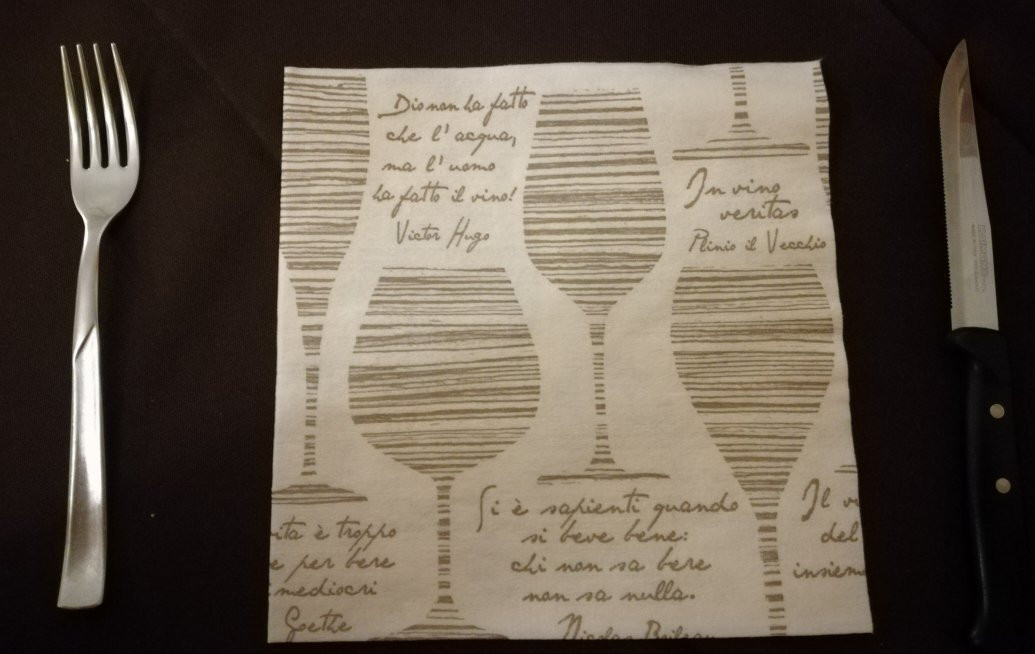 Dio non ha fatto
che l'acqua,
ma l'uomo
ha fatto il vino!
Victor Hugo
In vino
veritas
Plinio il Vecchio
ita è troppo
e per bere
mediocri
Goethe
Si è sapienti quando
si beve bene:
chi non sa bere
non sa nulla.
Nicolas Boileau
Il
del
insiem